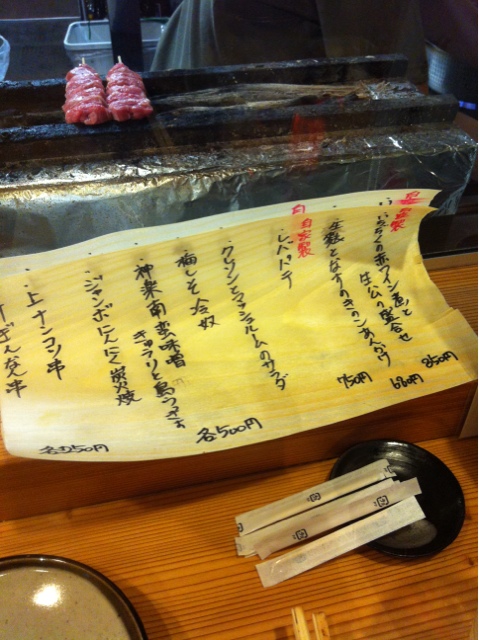 自家製
いちぢくの赤ワイン煮と
生ハム盛合せ
850円
生麩となすのきのこあんかけ
680円
自家製
レバパテ
750円
クレソンとマッシュルームのサラダ
梅しそ冷奴
神楽南蛮味噌
キャラリと鳥つくね
各500円
ジャンボにんにく炭火焼
上ナンコツ串
ぎんなん串
各250円